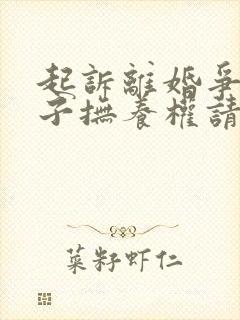 起訴離婚爭
子撫養權請
菜籽虾仁